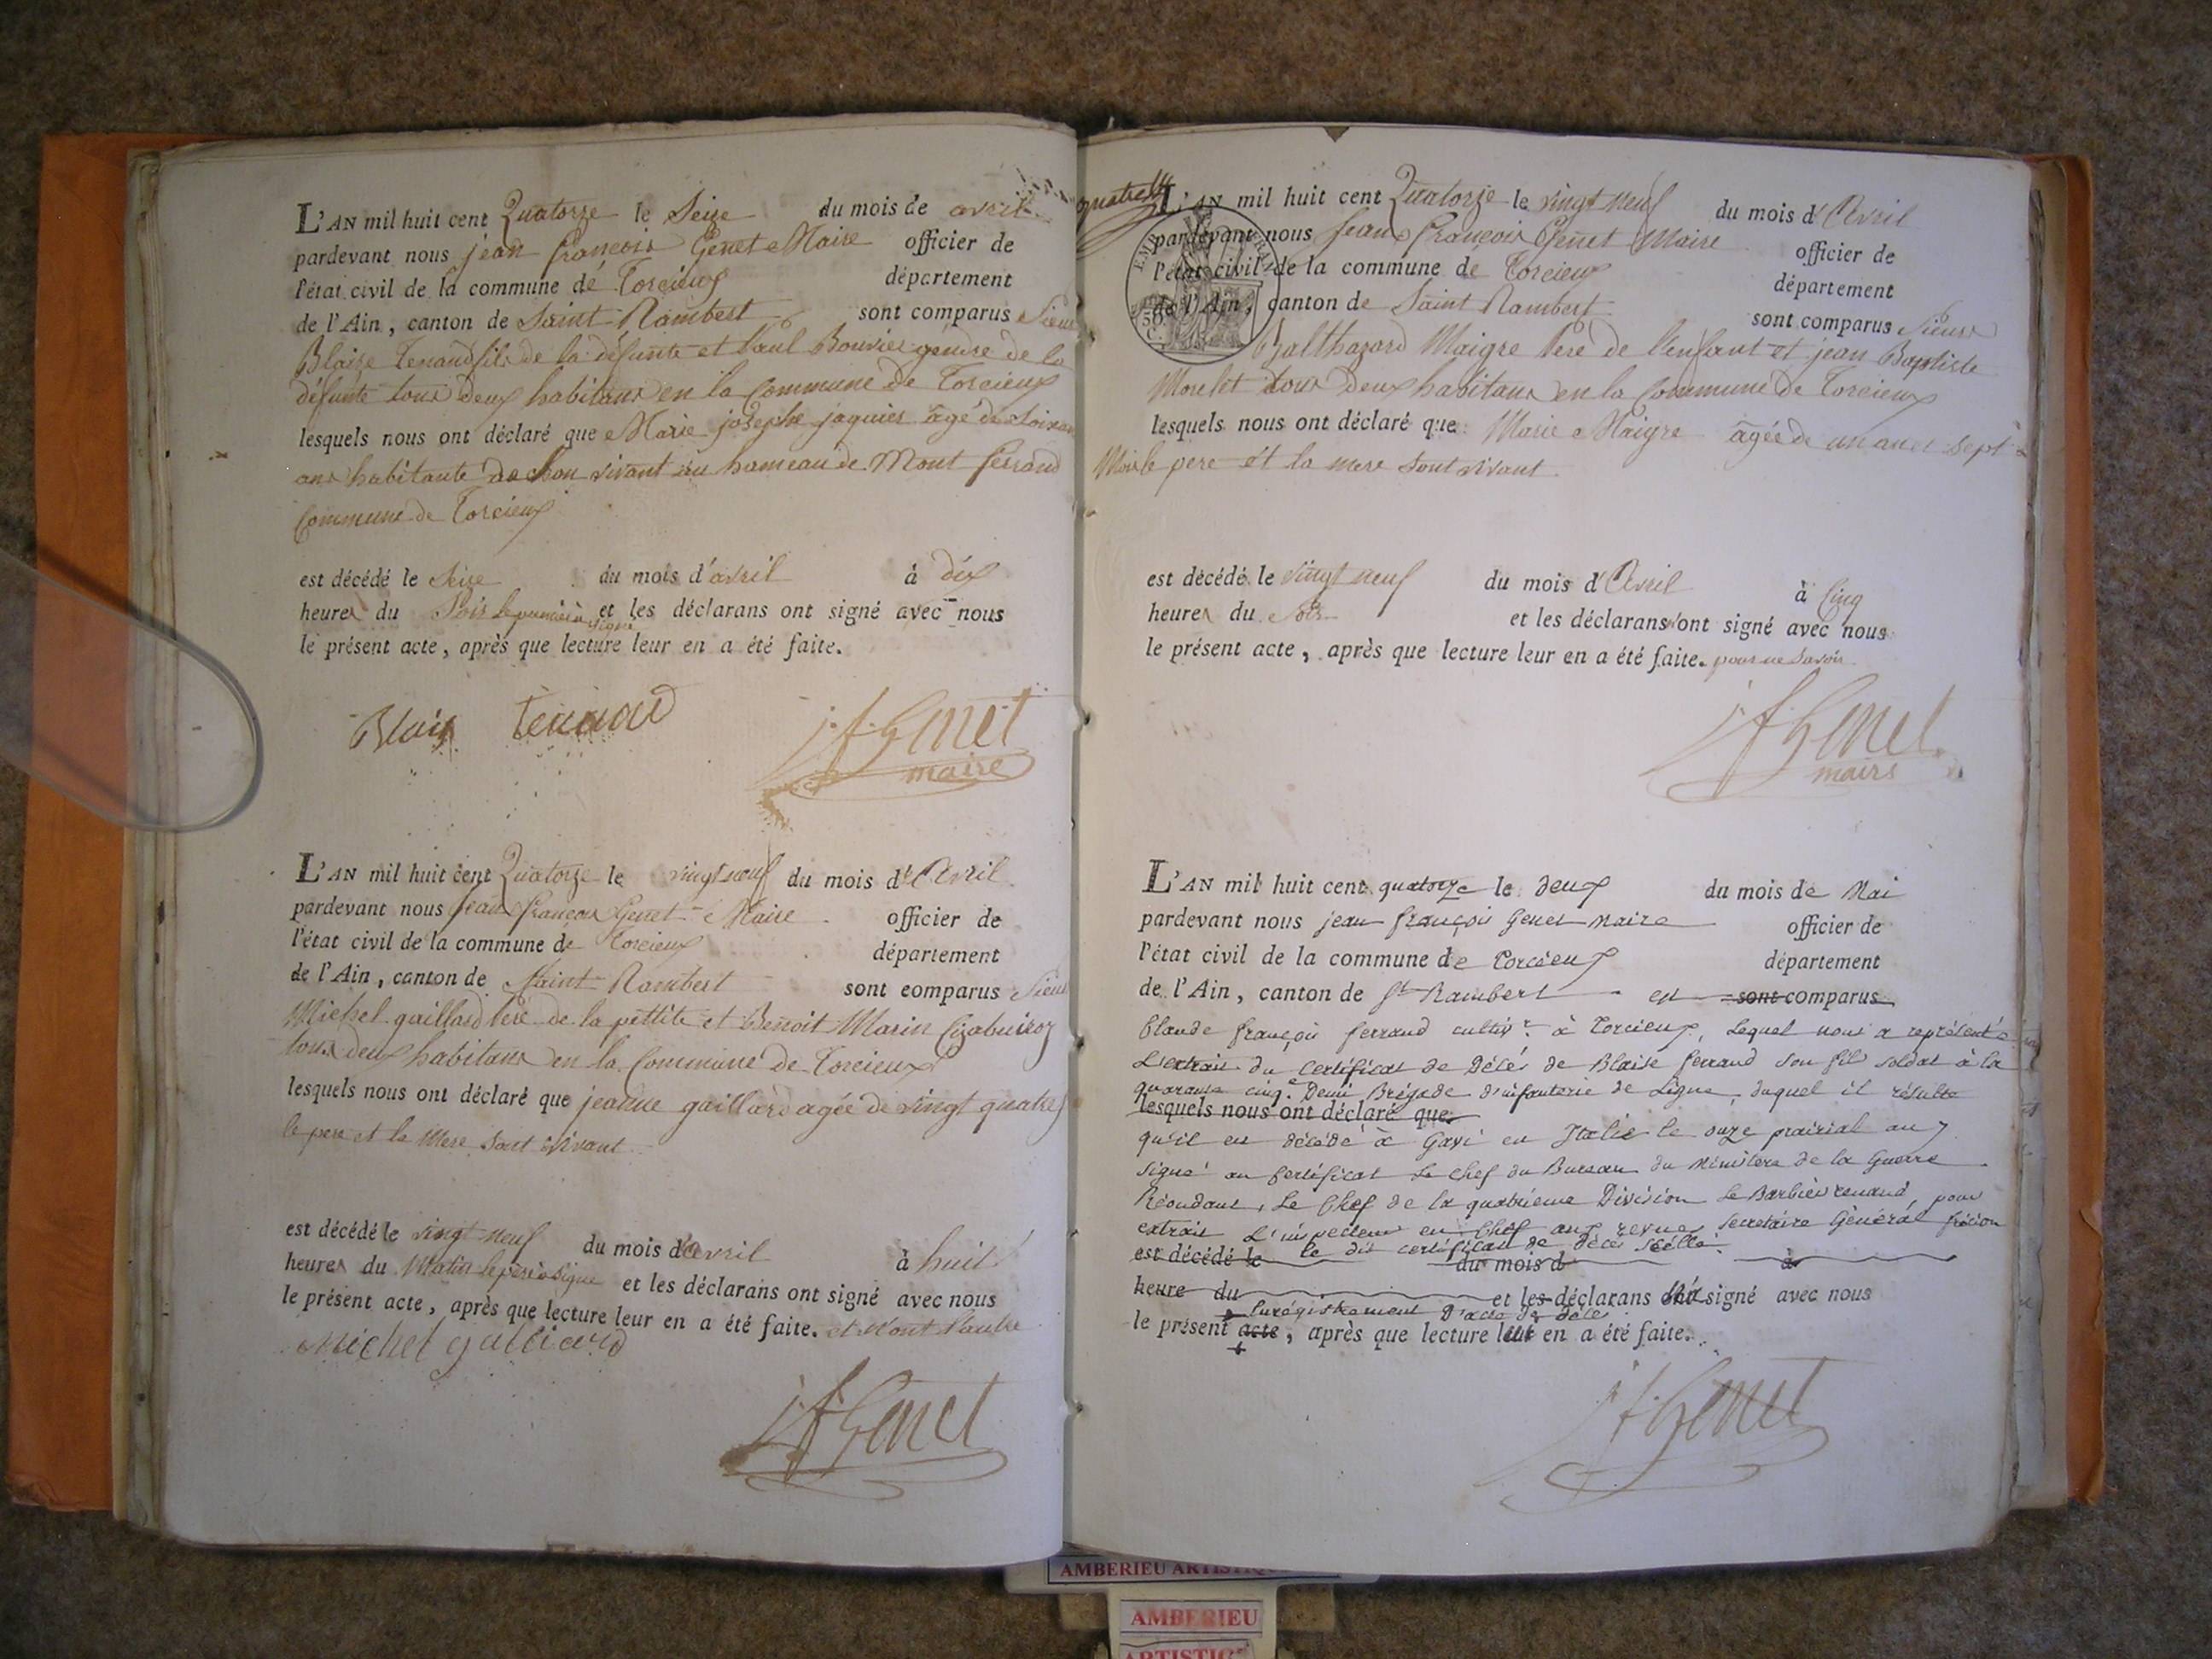 L'AN mil huit cent Quatorze le Seize du mois de avril
pardevant nous jean françois Genet Maire officier de
l'état civil de la commune de Torcieux département
de l'Ain, canton de Saint Rambert sont comparus Sieur
Blaize Tenand fils de la défunte et Paul Bouvier gendre de la
défunte tous deux habitans en la Commune de Torcieux
lesquels nous ont déclaré que Marie josephe jaquier âgé de
ans habitante de son vivant au hameau de Mont ferrand
Commune de Torcieux
est décédé le Seize du mois d'avril à dix
heures du Soir le premier à signé et les déclarans ont signé avec nous
le présent acte, après que lecture leur en a été faite.
Blaise Tenand j. f. Genet
maire
L'AN mil huit cent Quatorze le vingt neuf du mois d'Avril
pardevant nous jean françois Genet Maire officier de
l'état civil de la commune de Torcieux département
de l'Ain, canton de Saint Rambert sont comparus Sieur
Michel gaillard Père de la pettite et Benoit Marin
tous deux habitans en la Commune de Torcieux
lesquels nous ont déclaré que jeanne gaillard agée de vingt quatre
le pere et la Mere sont vivant
est décédé le vingt neuf du mois d'avril à huit
heures du Matin le père a signé et les déclarans ont signé avec nous
le présent acte, après que lecture leur en a été faite. et Non l'autre
Michel galliard
j f Genet
quatre
L'AN mil huit cent Quatorze le vingt neuf du mois d'Avril
pardevant nous jean françois Genet Maire officier de
l'état civil de la commune de Torcieux département
de l'Ain, canton de Saint Rambert sont comparus Sieurs
Balthazard Maigre Père de l'enfant et jean Baptiste
Morelet tous deux habitans en la Commune de Torcieux
lesquels nous ont déclaré que Marie Maigre âgée de un an et sept
Mois le pere et la mere sont vivant
est décédé le vingt neuf du mois d'Avril à Cinq
heures du Soir et les déclarans n'ont signé avec nous
le présent acte, après que lecture leur en a été faite. pour ne Savoir
j f Genet
maire
L'AN mil huit cent quatorze le deux du mois de Mai
pardevant nous jean françois Genet maire officier de
l'état civil de la commune de Torcieux département
de l'Ain, canton de St Rambert est sont comparus
Claude françois ferrand cultivr à Torcieux, Lequel nous a représenté
L'extrait du Certificat de Décès de Blaise ferrand son fils soldat à la
quarante cinqe Demi Brigade d'infanterie de Ligne, duquel il résulte
lesquels nous ont déclaré que
qu'il est décédé à Gavi en Italie le onze prairial an 7
Signé au Certificat Le Chef du Bureau du Ministere de la Guerre
Le Chef de la quatrieme Division pour
extrait L'inspecteur en Chef aux revues Secretaire Général
le dit certificat de décès scellé
est décédé le du mois d à
heure du et les déclarans signé avec nous
L'enrégistrement D'acte de décès
le présent acte, après que lecture leur en a été faite.
j f Genet
AMBERIEU
AMBERIEU